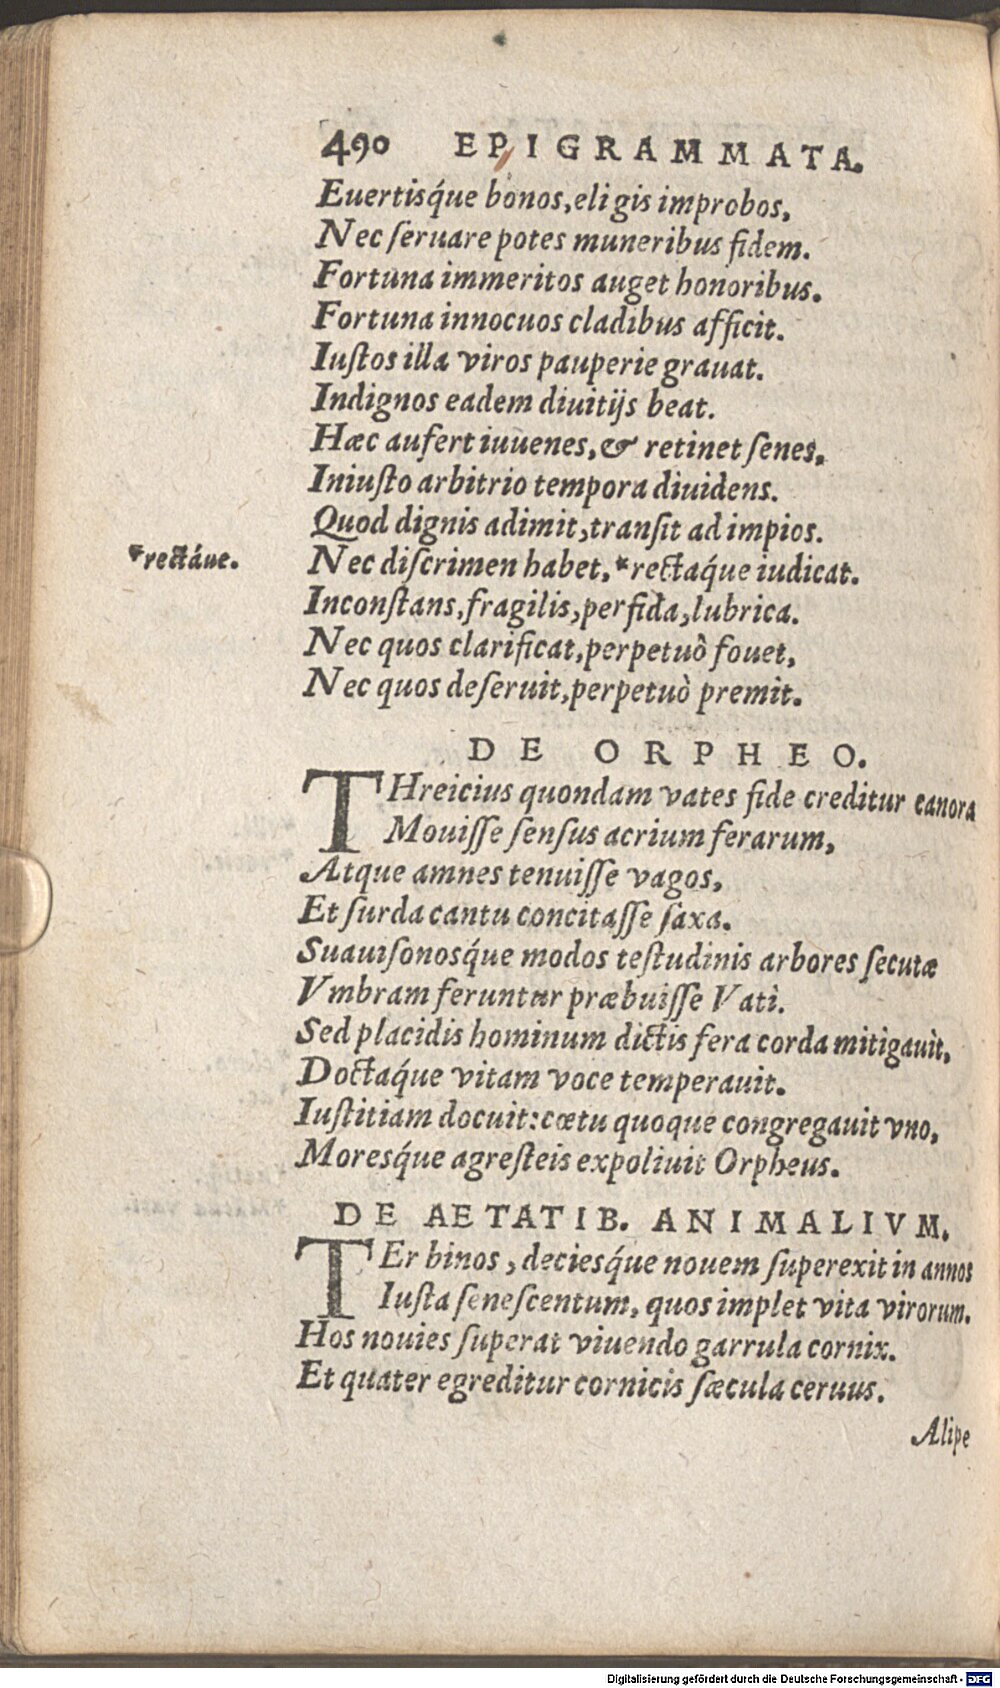 490 EPIGRAMMATA.
Euertisq́ue bonos, eligis improbos,
Nec ſeruare potes muneribus fidem.
Fortuna immeritos auget honoribus.
Fortuna innocuos cladibus afficit.
Iuſtos illa viros pauperie grauat.
Indignos eadem diuitijs beat.
Hæc aufert iuuenes, & retinet ſenes,
Iniuſto arbitrio tempora diuidens.
Quod dignis adimit, tranſit ad impios.
*rectáve.
Nec diſcrimen habet, *rectaq́ue iudicat.
Inconſtans, fragilis, perfida, lubrica.
Nec quos clarificat, perpetuò fouet,
Nec quos deſeruit, perpetuò premit.
DE ORPHEO.
THreicius quondam vates fide creditur canora
Mouiſſe ſenſus acrium ferarum,
Atque amnes tenuiſſe vagos,
Et ſurda cantu concitaſſe ſaxa.
Suauiſonosq́ue modos teſtudinis arbores ſecutæ
Vmbram feruntur præbuiſſe Vati.
Sed placidis hominum dictis fera corda mitigauit,
Doctaq́ue vitam voce temperauit.
Iuſtitiam docuit: cœtu quoque congregauit vno,
Moresq́ue agreſteis expoliuit Orpheus.
DE AETATIB. ANIMALIVM.
TEr binos, deciesq́ue nouem ſuperexit in annos
Iuſta ſeneſcentum, quos implet vita virorum.
Hos nouies ſuperat viuendo garrula cornix.
Et quater egreditur cornicis ſæcula ceruus.
Alipe
Digitalisierung gefördert durch die Deutsche Forschungsgemeinschaft - DFG